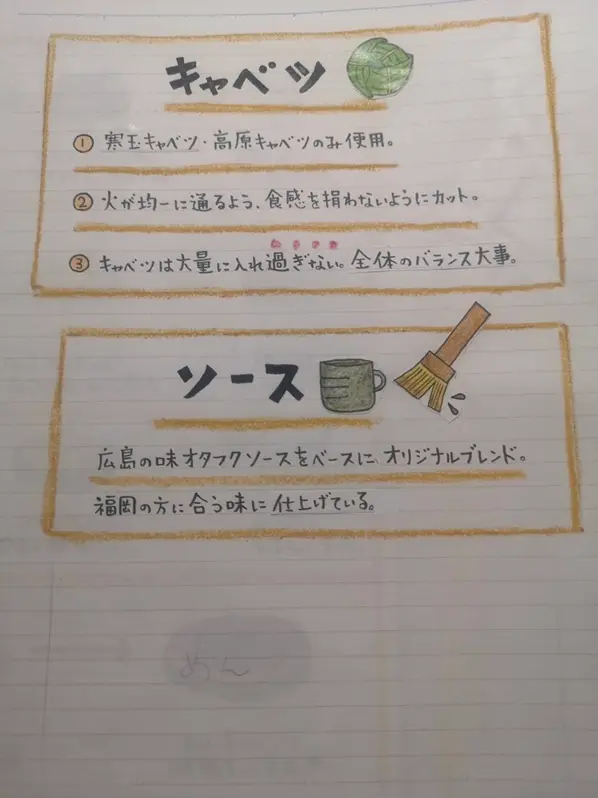 キャベツ
① 寒玉キャベツ・高原キャベツのみ使用。
②火が均一に通るよう、食感を損わないようにカット。
③ キャベツは大量に入れ過ぎない。全体のバランス大事。
ソース
広島の味オタフクソースをベースに、オリジナルブレンド。
福岡の方に合う味に仕上げている。
めん